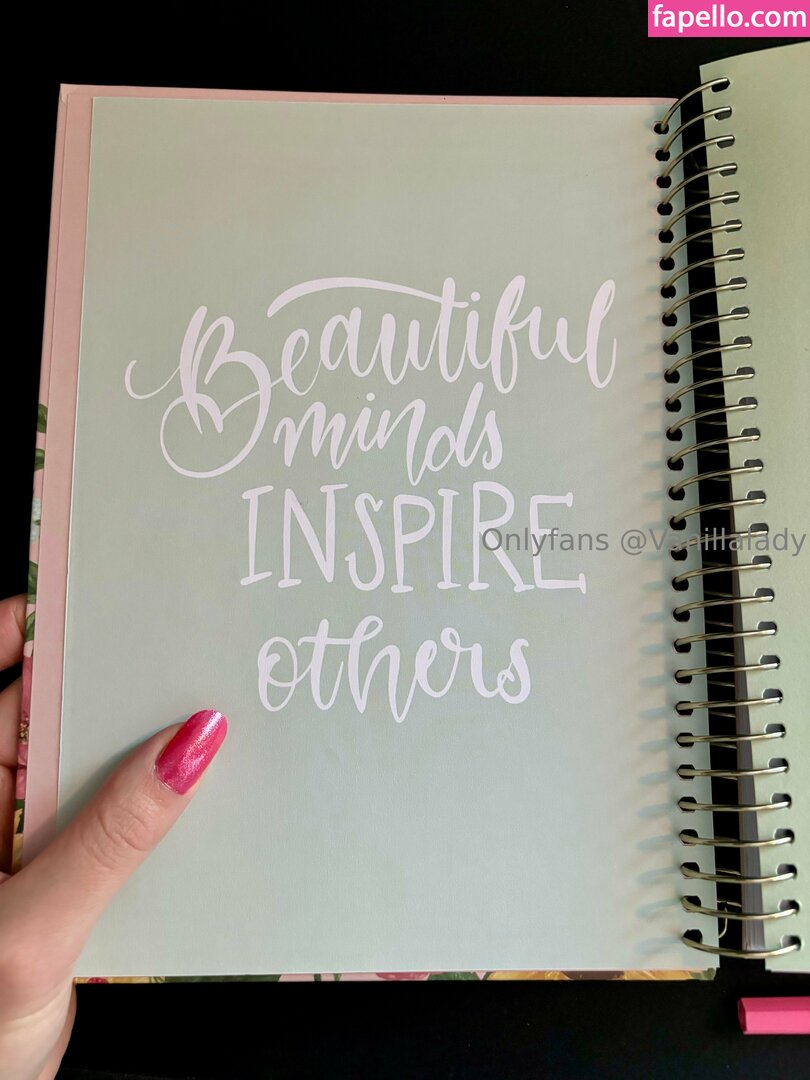 fapello.com
Beautiful
minds
INSPIRE
Onlyfans @Vanillalady
others